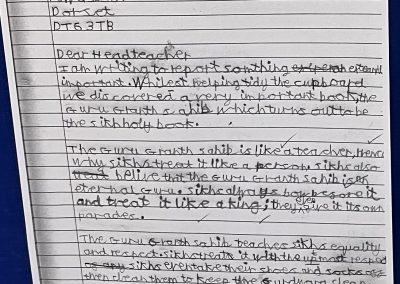 Dorset
DT6 3TB
Dear Headteacher
I am writing to report somthing
important. Whilest helping tidy the cupboard
we discovered a very important book, the
Guru Granth sahib which turns out to be
the sikh holy book.
The Guru Granth sahib is like a teacher, Hence
why sikhs treat it like a person. sikhs also
belive that the Guru Granth sahib is an
eternal Guru. sikhs always bow before it
and treat it like a king; they even give it its own
parades.
The Guru Granth sahib teaches sikhs equality
and respect. sikhs treat it with the upmost respect
sikhs even take their shoes and socks off
then clean them to keep the Gurdwara clean